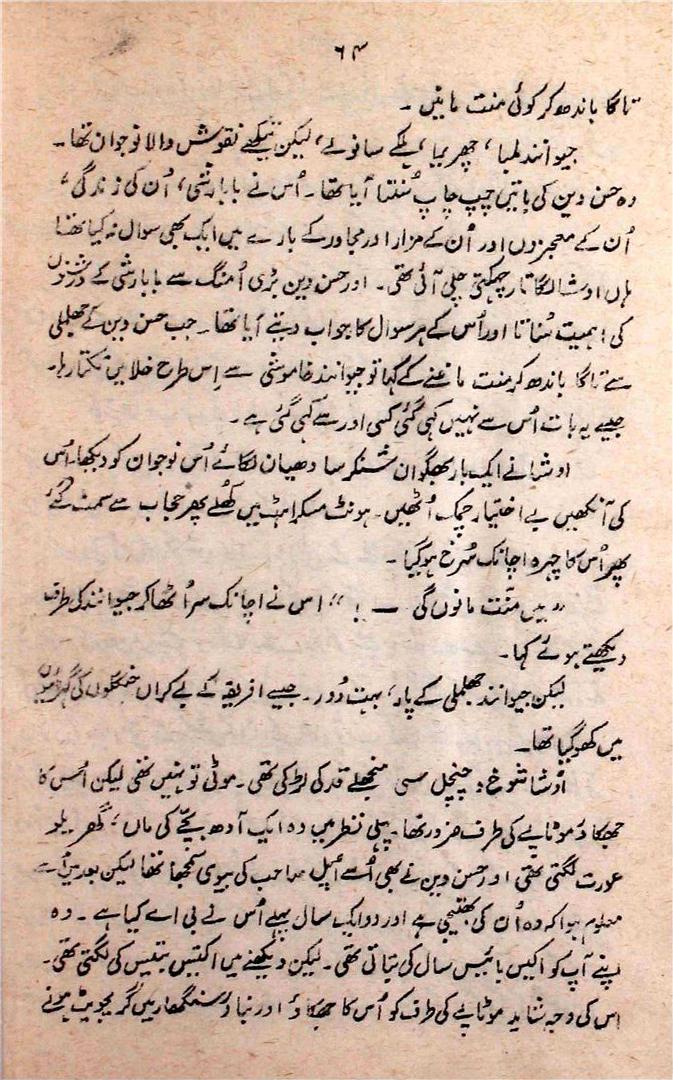 ۶۴
تاگا باندھ کر کوئی منت مانیں ۔
جیوانند لمبا، چھریرا، ہلکے سانولے، لیکن تیکھے نقوش والا نوجوان تھا ۔
وہ حسن دین کی باتیں چپ چاپ سُنتا آیا تھا ۔ اُس نے بابا رشی، اُن کی زندگی،
اُن کے معجزوں اور اُن کے مزار اور مجاور کے بارے میں ایک بھی سوال نہ کیا تھا
ہاں اوشا لگاتار چہکتی چلی آئی تھی ۔ اور حسن دین بڑی اُمنگ سے بابا رشی کے درشنوں
کی اہمیت سُناتا اور اُس کے ہر سوال کا جواب دیتے آیا تھا ۔ جب حسن دین نے جھلملی
سے تاگا باندھ کر منت مانگنے کے کہا تو جیوانند خاموشی سے اِس طرح خلا میں تکتا رہا ۔
جیسے یہ بات اُس سے نہیں کہی گئی کسی اور سے کہی گئی ہے ۔
اوشا نے ایک بار بھگوان شنکر سا دھیان لگائے اُس نوجوان کو دیکھا ۔ اُس
کی آنکھیں بے اختیار چمک اُٹھیں ۔ ہونٹ مسکراہٹ میں کھلے پھر حجاب سے سمٹ گئے
پھر اُس کا چہرہ اچانک سُرخ ہو گیا ۔
”میں منّت مانوں گی — !“ اس نے اچانک سر اُٹھا کر جیوانند کی طرف
دیکھتے ہوئے کہا ۔
لیکن جیوانند جھلملی کے پار، بہت دُور ۔ جیسے افریقہ کے بے کراں جنگلوں کی گہرائیوں
میں کھو گیا تھا ۔
اُوشا شوخ و چنچل سی منجھلے قد کی لڑکی تھی ۔ موٹی تو نہیں تھی لیکن اُس کا
جھکاؤ موٹاپے کی طرف ضرور تھا ۔ پہلی نظر میں وہ ایک آدھ بچّے کی ماں، گھریلو
عورت لگتی تھی اور حسن دین نے بھی اُسے اپل صاحب کی بیوی سمجھا تھا لیکن بعد میں اُسے
معلوم ہوا کہ وہ اُن کی بھتیجی ہے اور دو ایک سال پہلے اُس نے بی اے کیا ہے ۔ وہ
اپنے آپ کو اکیس بائیس سال کی بتاتی تھی ۔ لیکن دیکھنے میں اکتیس بتیس کی لگتی تھی ۔
اس کی وجہ شاید موٹاپے کی طرف کو اُس کا جھکاؤ اور بناؤ سنگھار میں گریجویٹ ہونے